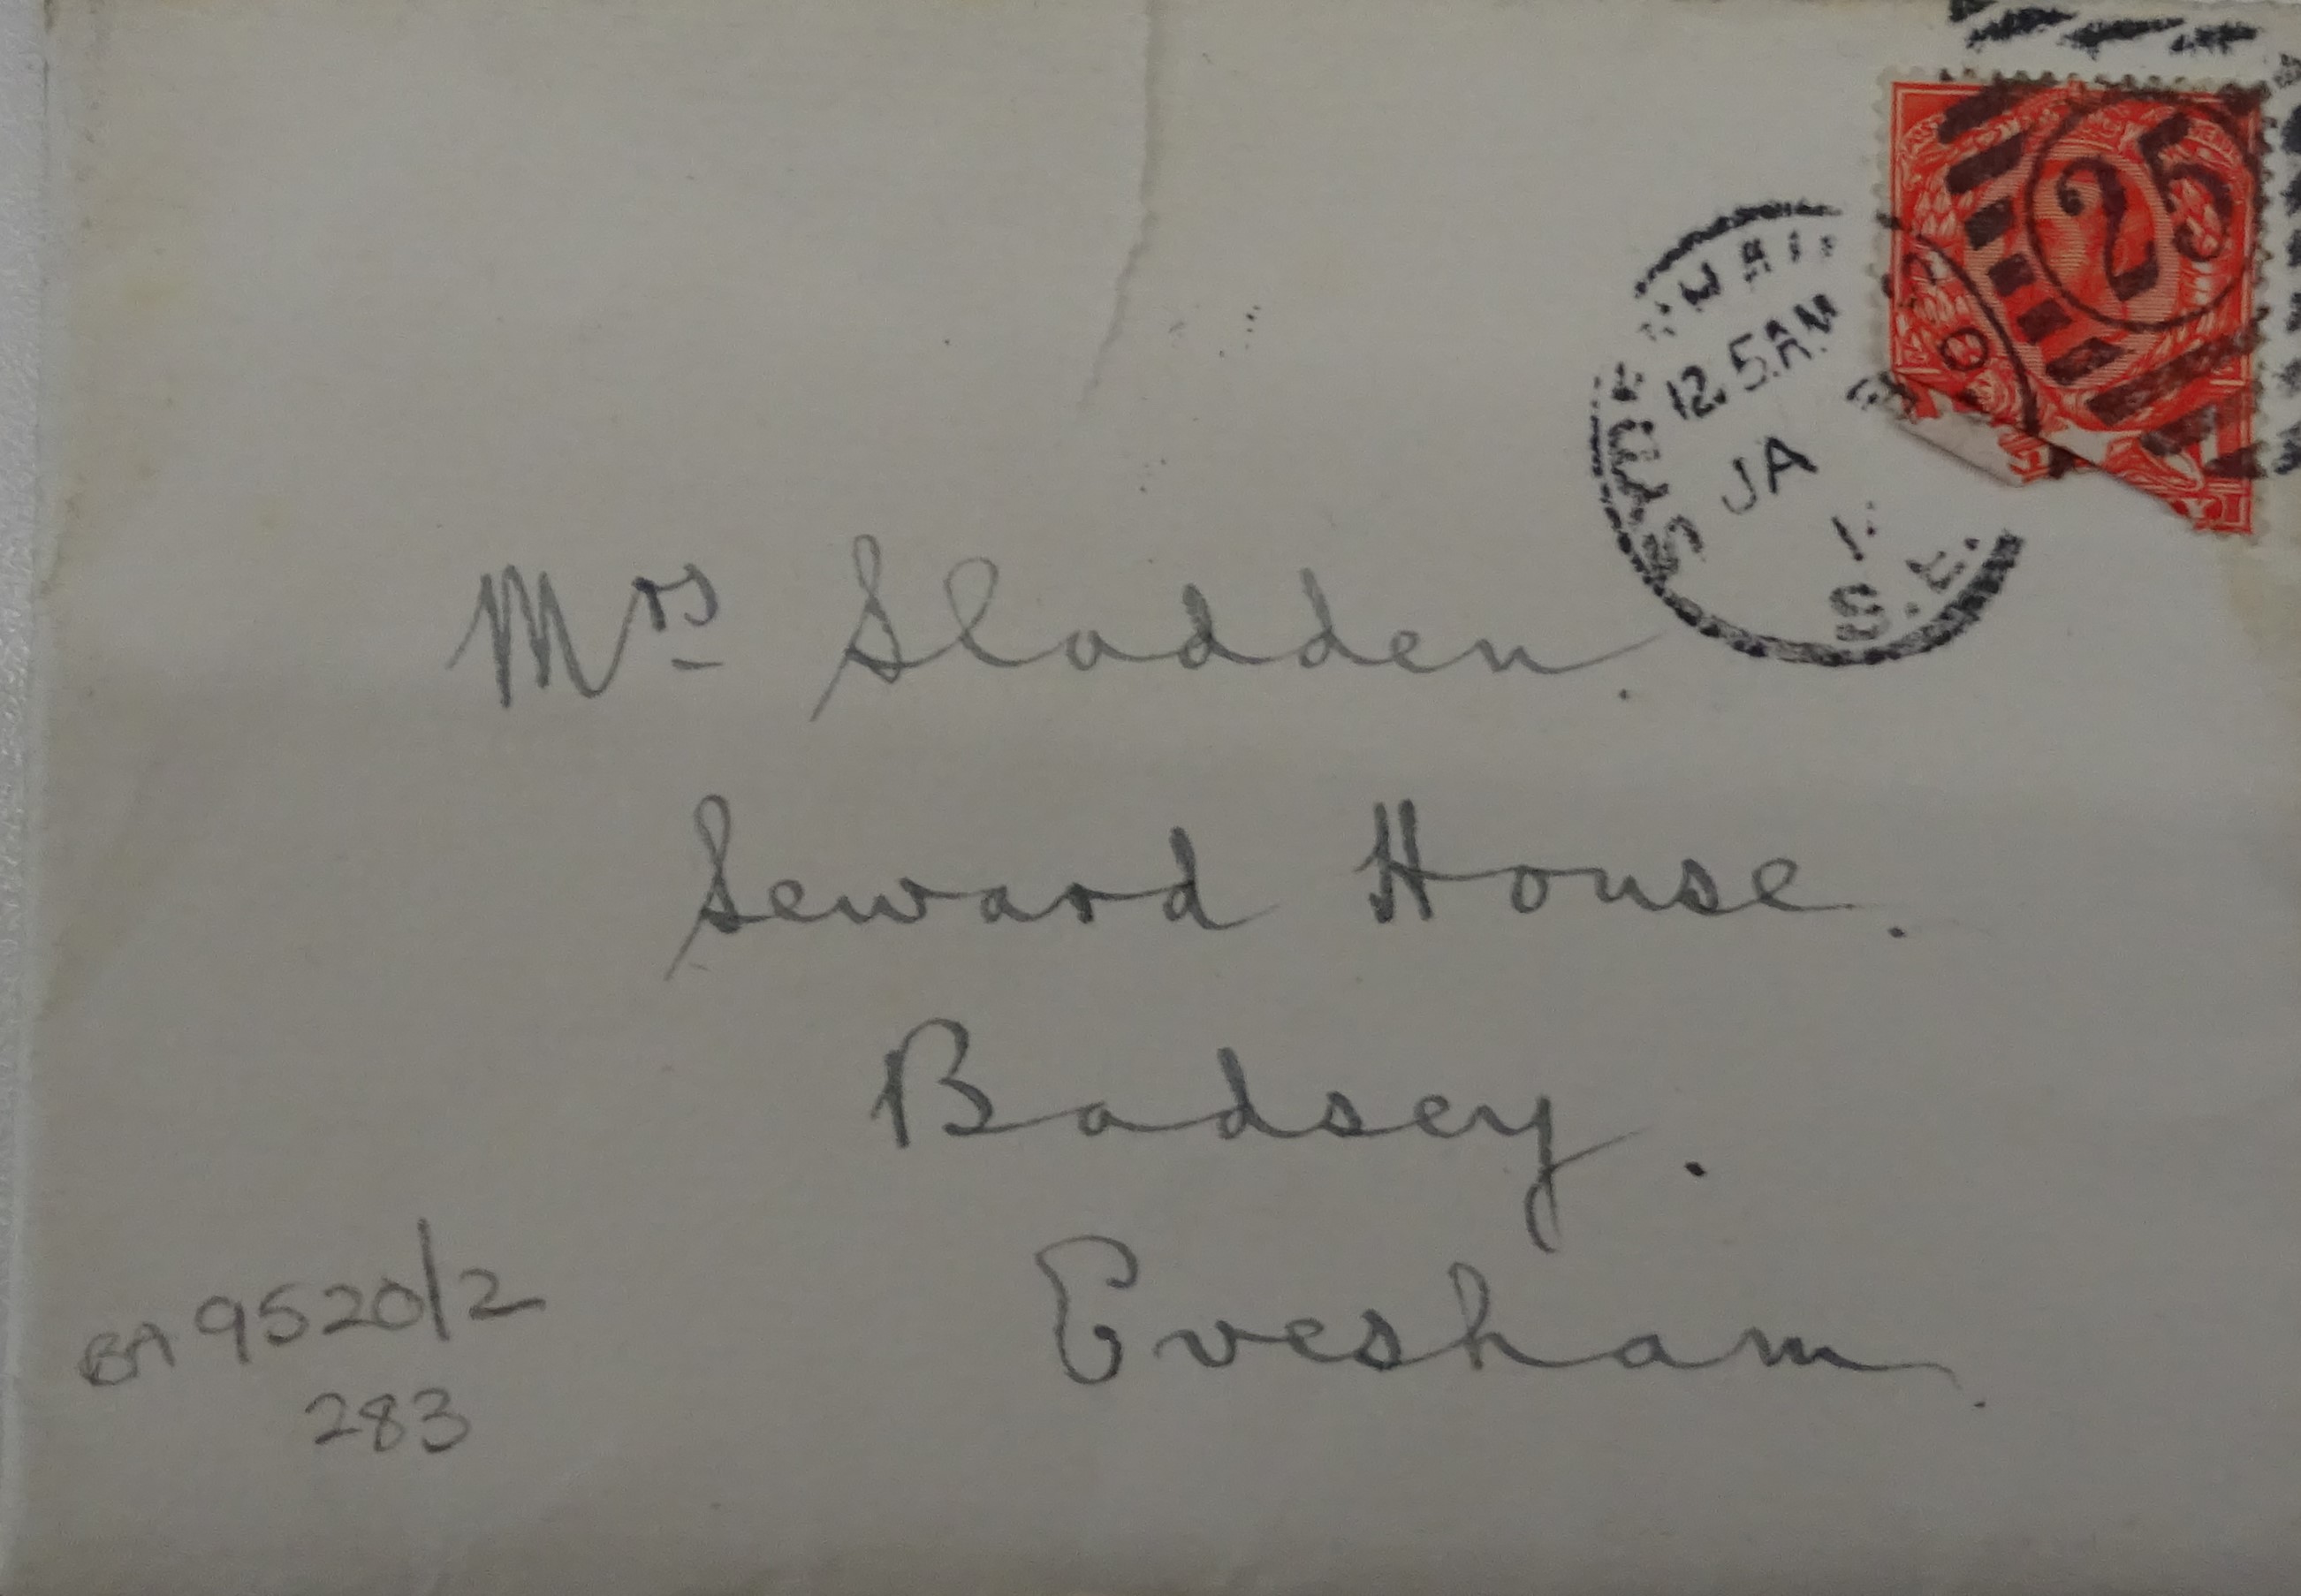 25
12.5AM
JA
S.E.
Mrs Sladden.
Seward House.
Badsey.
Evesham.
BA 9520/2
283